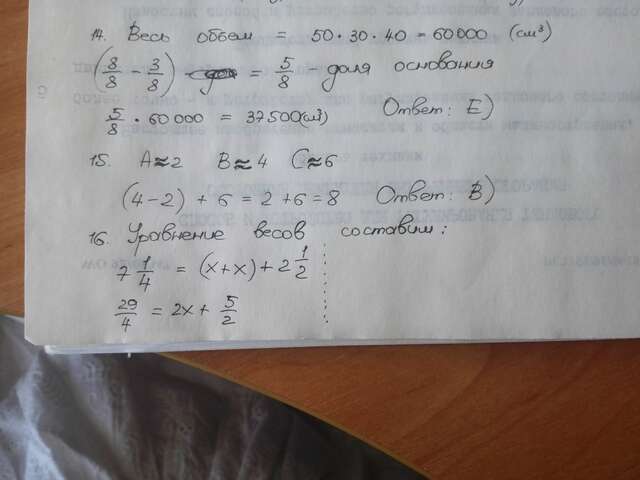 14. Весь объем = 50 · 30 · 40 = 60000 (см³)
(8/8 - 3/8) = 5/8 - доля основания
5/8 · 60000 = 37500 (см³) Ответ: E)
15. A≈2 B≈4 C≈6
(4-2) + 6 = 2+6=8 Ответ: B)
16. Уравнение весов составим:
7 1/4 = (x+x) + 2 1/2
29/4 = 2x + 5/2